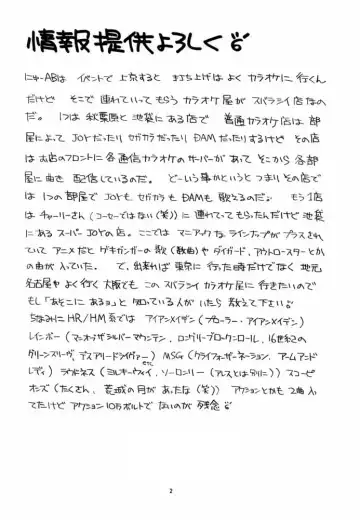 情報提供よろしくぅ
にゃーABは イベントで上京すると 打ち上げは よく カラオケに行くん
だけど そこで 連れていってもらう カラオケ屋が スバラシイ店なの
だ。1つは 秋葉原と池袋にある店で 普通カラオケ店は 部
屋によって JOYだったり セガカラだったり DAMだったりするけど その店
は お店のフロントに各通信カラオケの サーバーが あって そこから 各部
屋に曲を 配信しているのだ。どーいう事かというと つまり その店で
は 1つの部屋で JOYも セガカラも DAMも歌えるのだ。もう1店
はチャーリーさん(コーセーではない(笑))に 連れてってもらったんだけど 池袋
にある スーパーJOYの店。ここでは マニアックな ラインアップが プラスされ
ていて アニメだと ゲキガンガーの歌(数曲)や ダイガード、アウトロースターとか
の曲が入っていた。で、出来れば 東京に 行った時だけでなく 地元
名古屋や よく行く大阪でも このスバラシイ カラオケ屋に 行きたいので
もし「あそこに あるョ」と 知っている人が いたら 教えて下さいぅ
ちなみに HR/HM系では アイアンメイデン(プローラー・アイアンメイデン)
レインボー(マン・オン・ザ・シルバーマウンテン、ロングリブ・ロックンロール、16世紀の
グリーンスリーブ、デス アリー ドライヴァーetc) MSG(クライ フォー ザ ネーション、アームド アンド
レディ) ラウドネス(ミルキーウェイ、ソー ロンリー(アレスとは別に)) スコーピ
オンズ(たくさん、荒城の月が あったな(笑)) アクションとかも 2曲入
ってたけど アクション100万ボルトで ないのが 残念ぅ
2